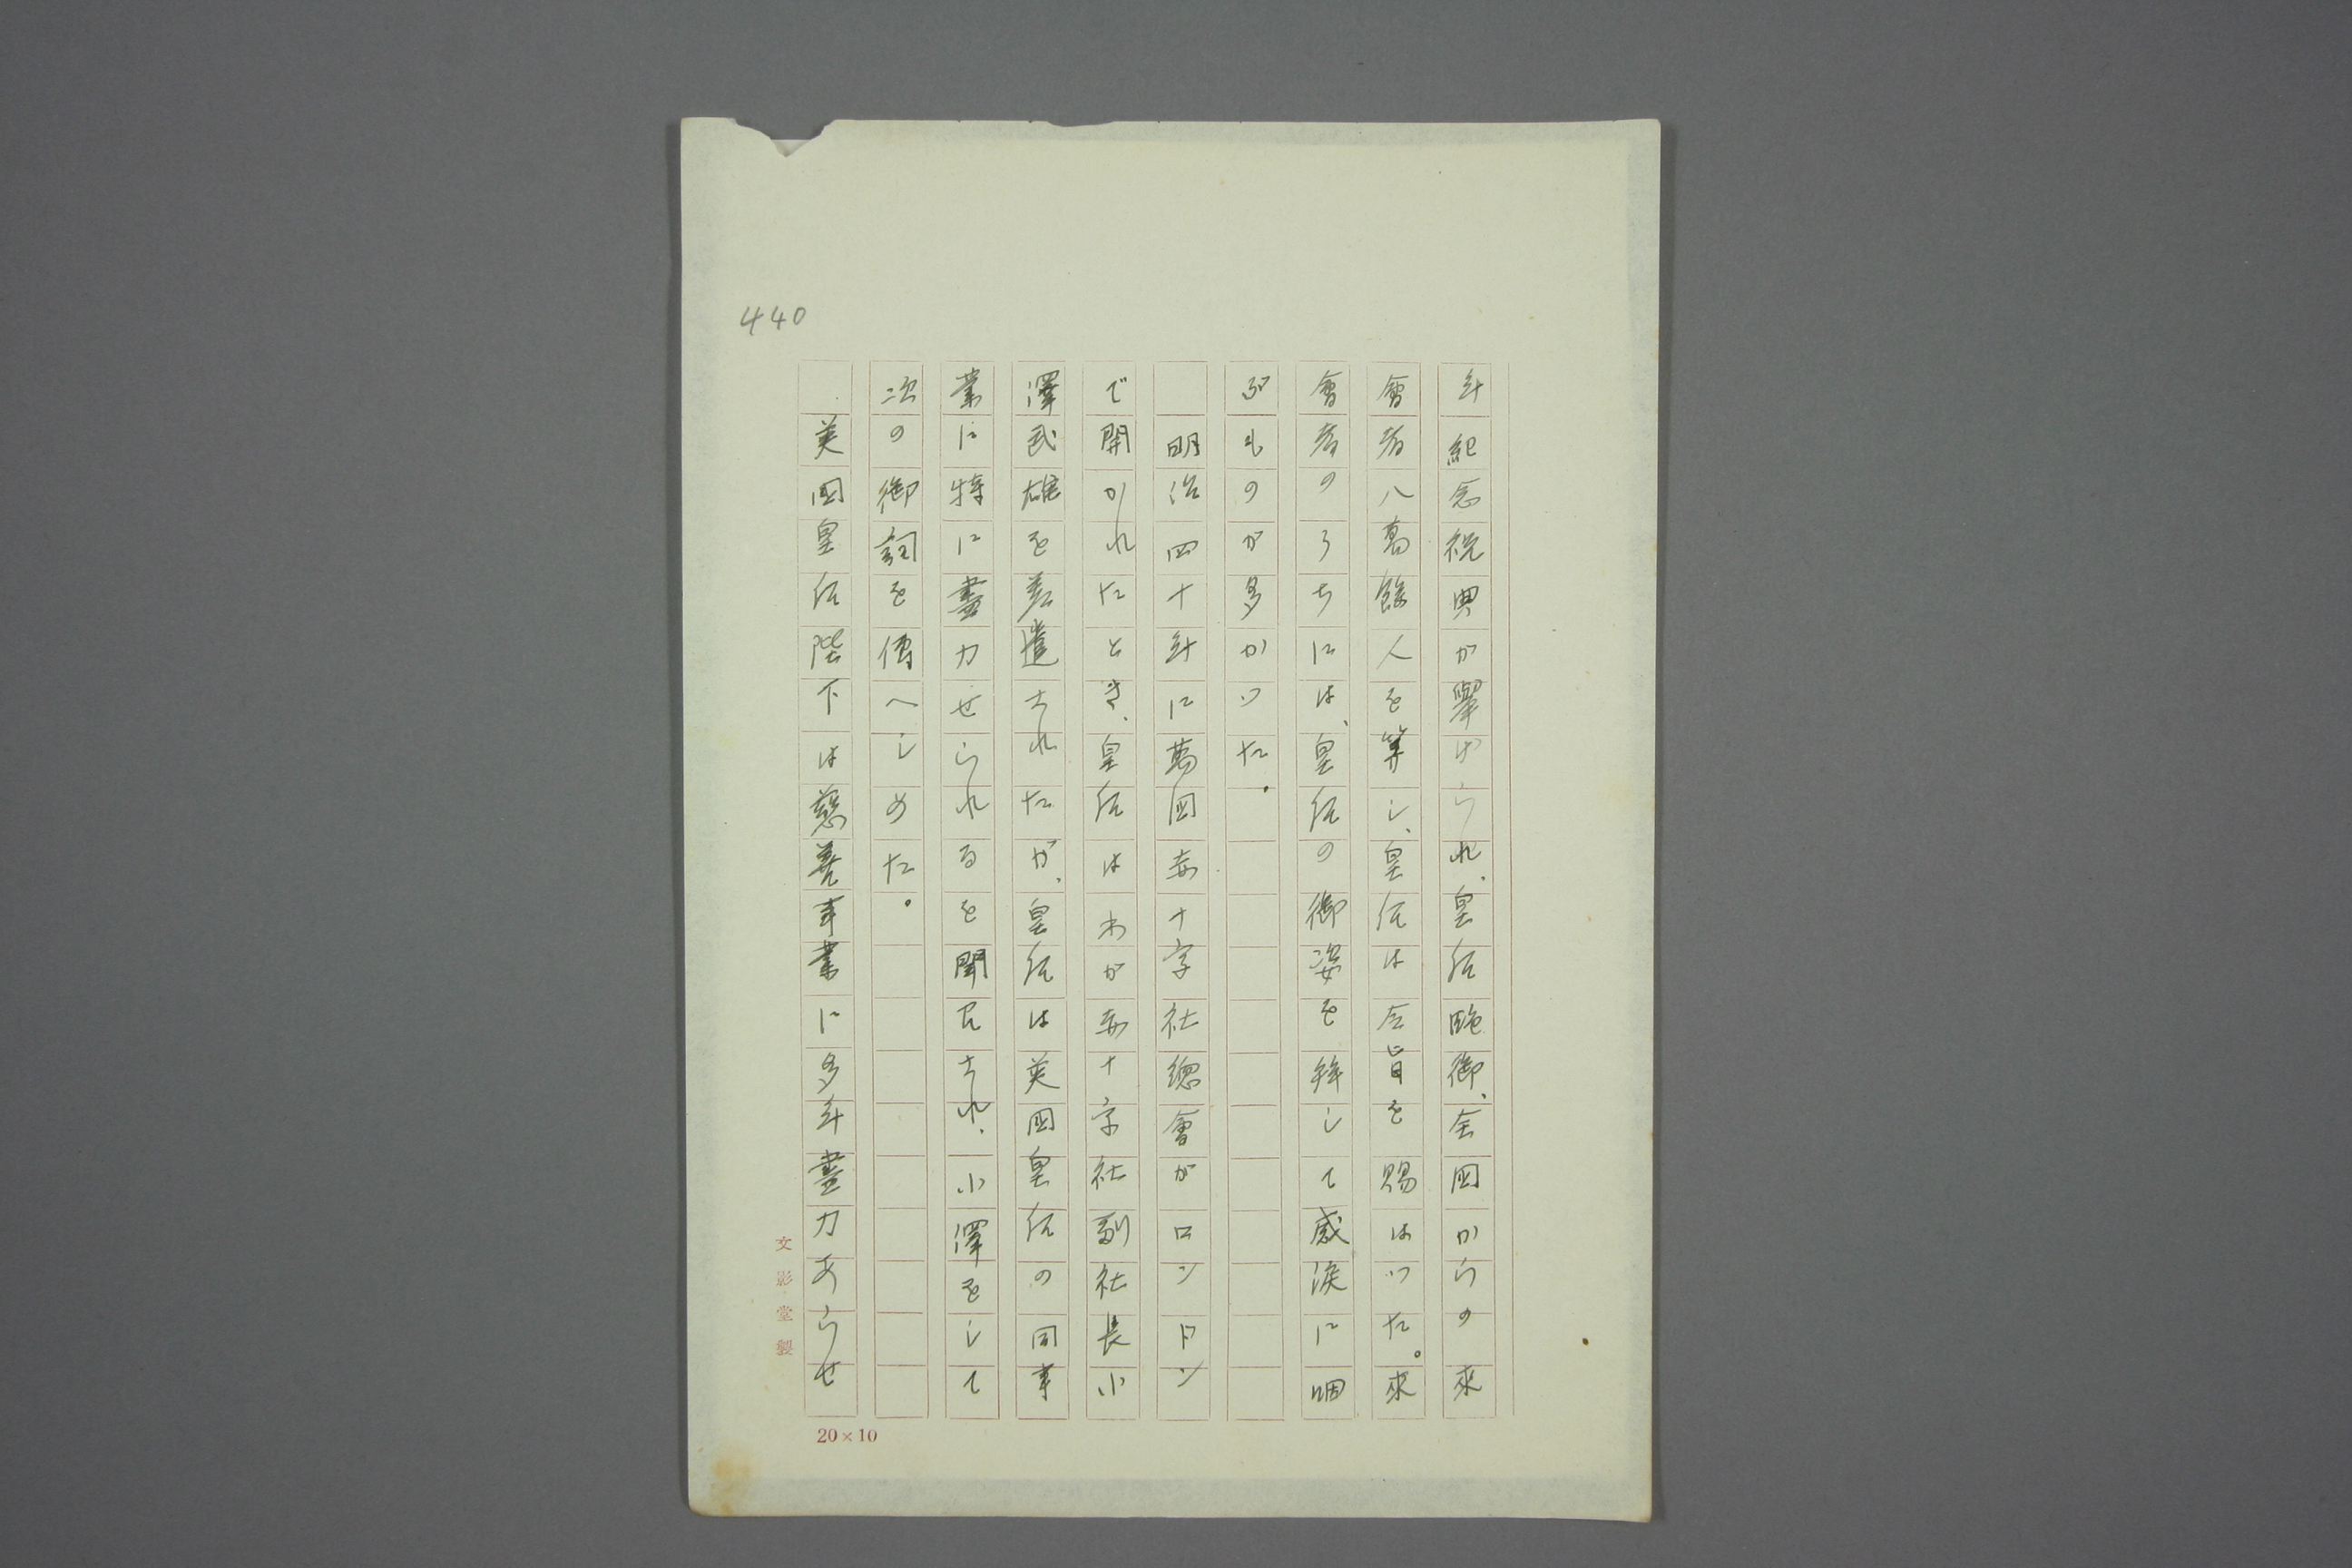 440
年紀念祝典が擧げられ、皇后臨御、全國からの來
會者八萬餘人を算し、皇后は令旨を賜はつた。來
會者のうちには、皇后の御姿を拜して感淚に咽
ぶものが多かつた。
明治四十年に萬國赤十字社總會がロンドン
で開かれたとき、皇后はわが赤十字社副社長小
澤武雄を差遣されたが、皇后は英國皇后の同事
業に特に盡力せられるを聞召され、小澤をして
次の御詞を傳へしめた。
英國皇后陛下は慈善事業に多年盡力あらせ
文影堂製
20×10